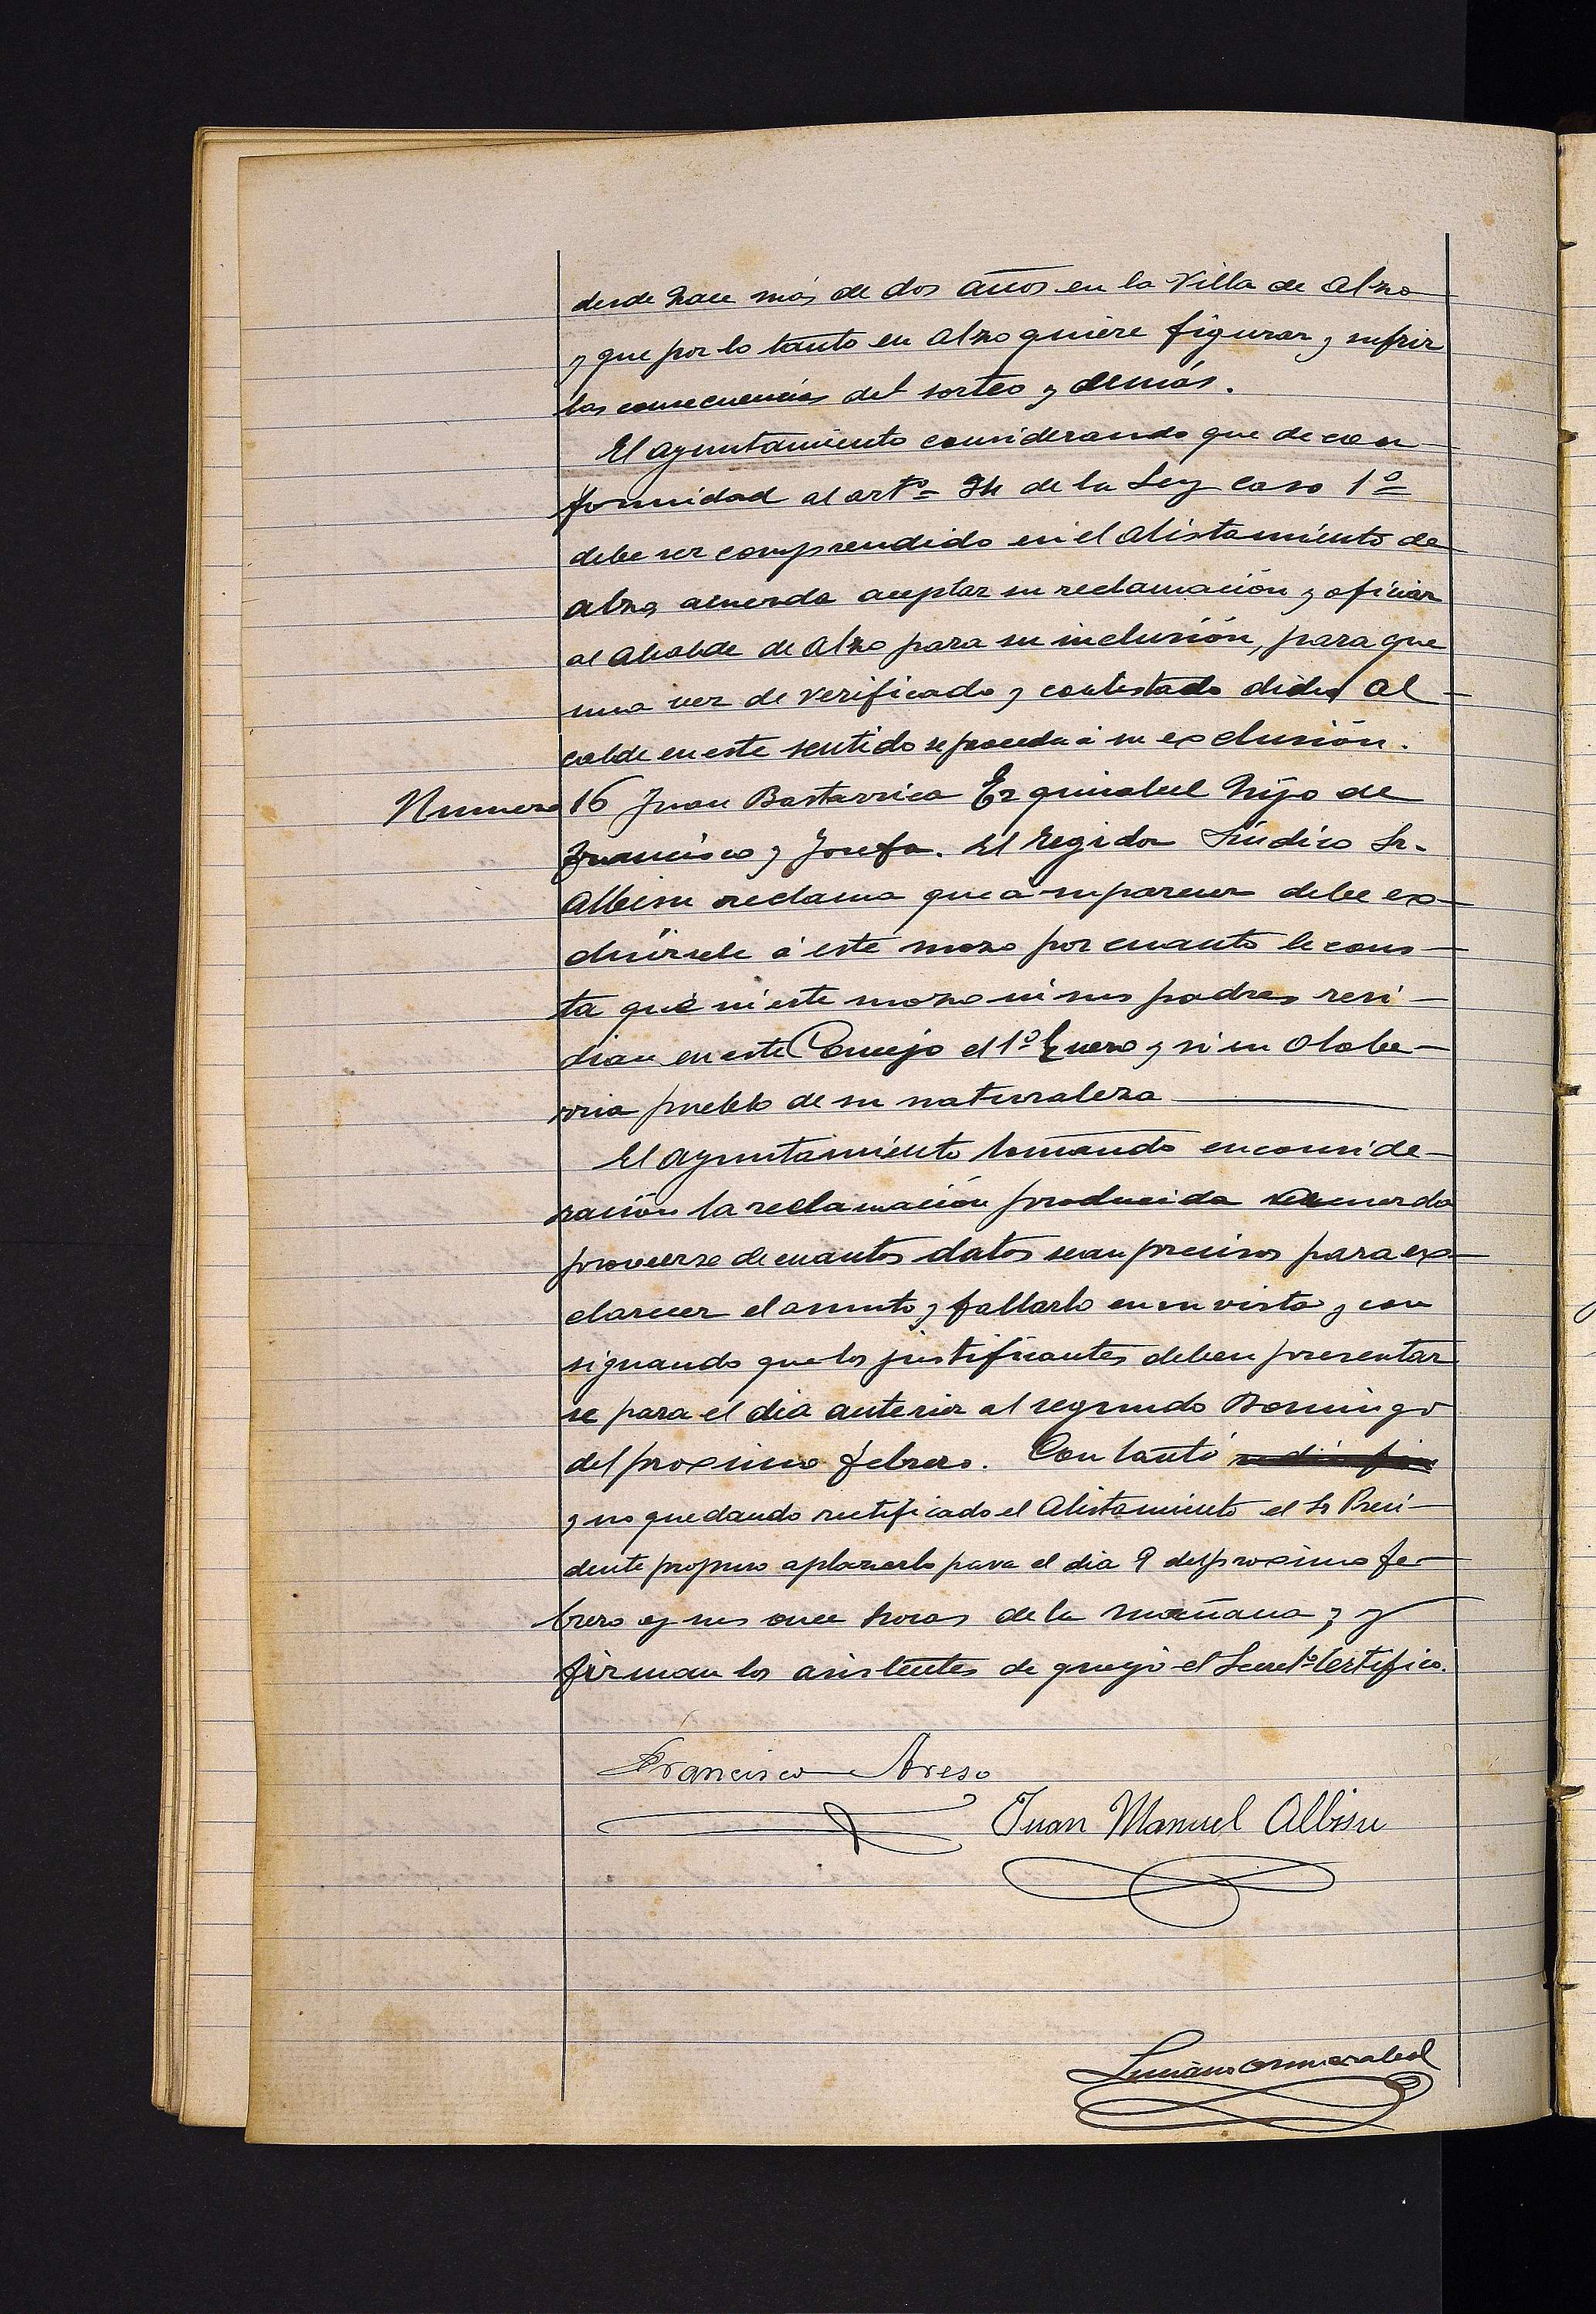 desde hace más de dos años en la Villa de Alzo
y que por lo tanto en Alzo quiere figurar y sufrir
las consecuencias del sorteo y demás.
El ayuntamiento considerando que de con
formidad al artº 34 de la Ley caso 1º
debe ser comprendido en el alistamiento de
Alzo, acuerda aceptar su reclamación y oficiar
al Alcalde de Alzo para su inclusión, para que
una vez de verificado y contestado dicho Al-
calde en este sentido se proceda á su exclusión.
Numero 16 Juan Bastarrica Ezquiabel hijo de
Francisco y Josefa. El regidor Síndico Sr.
Albisu reclama que á su parecer debe ex-
cluirsele á este mozo por cuanto le cons-
ta que ni este mozo ni sus padres resi-
dian en este Concejo el 1º Enero y si en Olabe-
rria pueblo de su naturaleza
El ayuntamiento tomando en conside-
ración la reclamación producida acuerda
proveerse de cuantos datos sean precisos para ex-
clarecer el asunto y fallarlo en su vista y con
signando que los justificantes deben presentar
se para el dia anterior al segundo Domingo
del proximo febrero. Con tanto
y no quedando rectificado el Alistamiento el Sr Presi-
dente propuso aplazarlo para el dia 9 del proximo fe-
brero y sus once horas de la mañana, y
firman los asistentes de que yo el Secretº Certifico.
Francisco Areso
Juan Manuel Albisu
Luciano